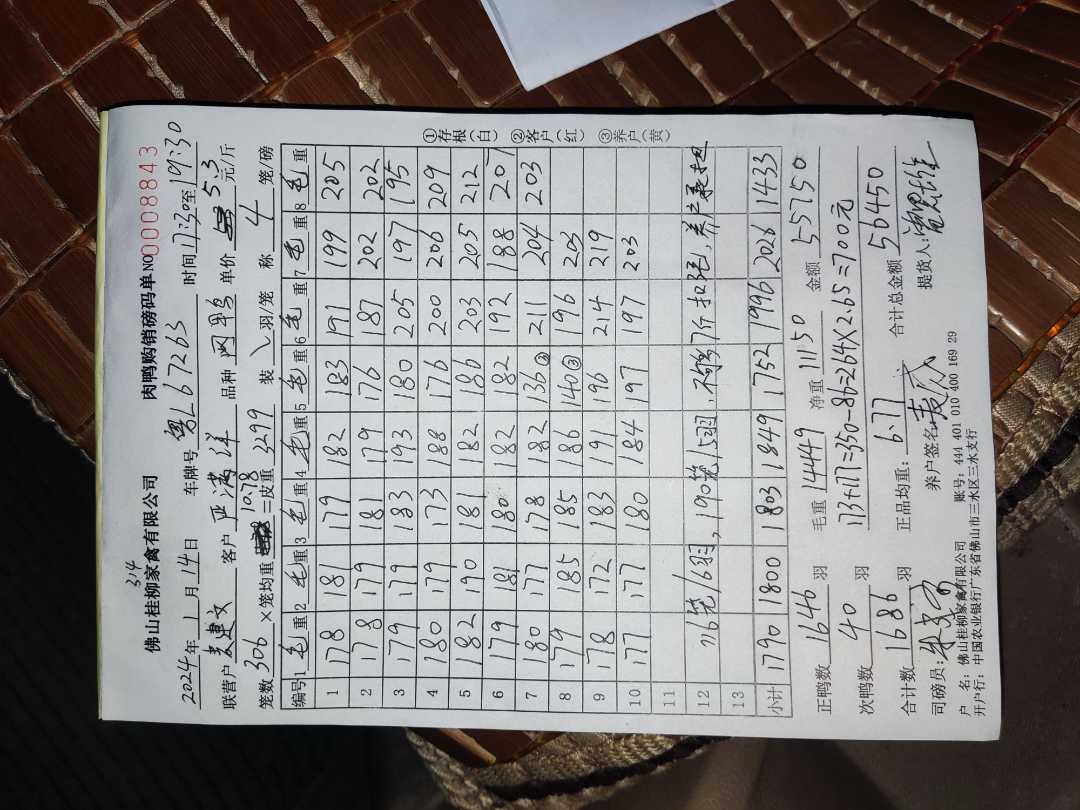 314
佛山桂柳家禽有限公司 肉鸭购销磅码单 NO 0008843
2024年 1 月 14 日 车牌号 粤L67263 时间 17:30至 19:30
联营户 建文 客户 严满洋 品种 单价 5.3 元/斤
笼数 306 ×笼均重 10.78 =皮重 3299 装 羽/笼 称 4 笼/磅
编号 1 毛重 2 毛重 3 毛重 4 毛重 5 毛重 6 毛重 7 毛重 8 毛重
1 178 181 179 182 183 191 199 205
2 178 179 181 179 176 187 202 202
3 179 179 183 193 180 205 197 195
4 180 179 173 188 176 200 206 209
5 182 190 181 182 186 203 205 212
6 179 181 180 182 182 192 188 207
7 180 177 178 182 136③ 211 204 203
8 179 185 185 186 140③ 196 203
9 178 172 183 191 196 214 219
10 177 177 180 184 197 197 203
11
12 116笼/6羽, 190笼/5羽.
13
小计 1790 1800 1803 1849 1752 1996 2026 1433
正鸭数 1646 羽 毛重 14449 净重 11150 金额 55750
次鸭数 40 羽 173+177=350-86=264×2.65=700元
合计数 1686 羽 正品均重: 6.77 合计总金额 56450
司磅员: 养户签名: 提货人:
户 名: 佛山桂柳家禽有限公司 账号: 444 401 010 400 169 29
开户行: 中国农业银行广东省佛山市三水区三水支行
①存根(白) ②客户(红) ③养户(黄)